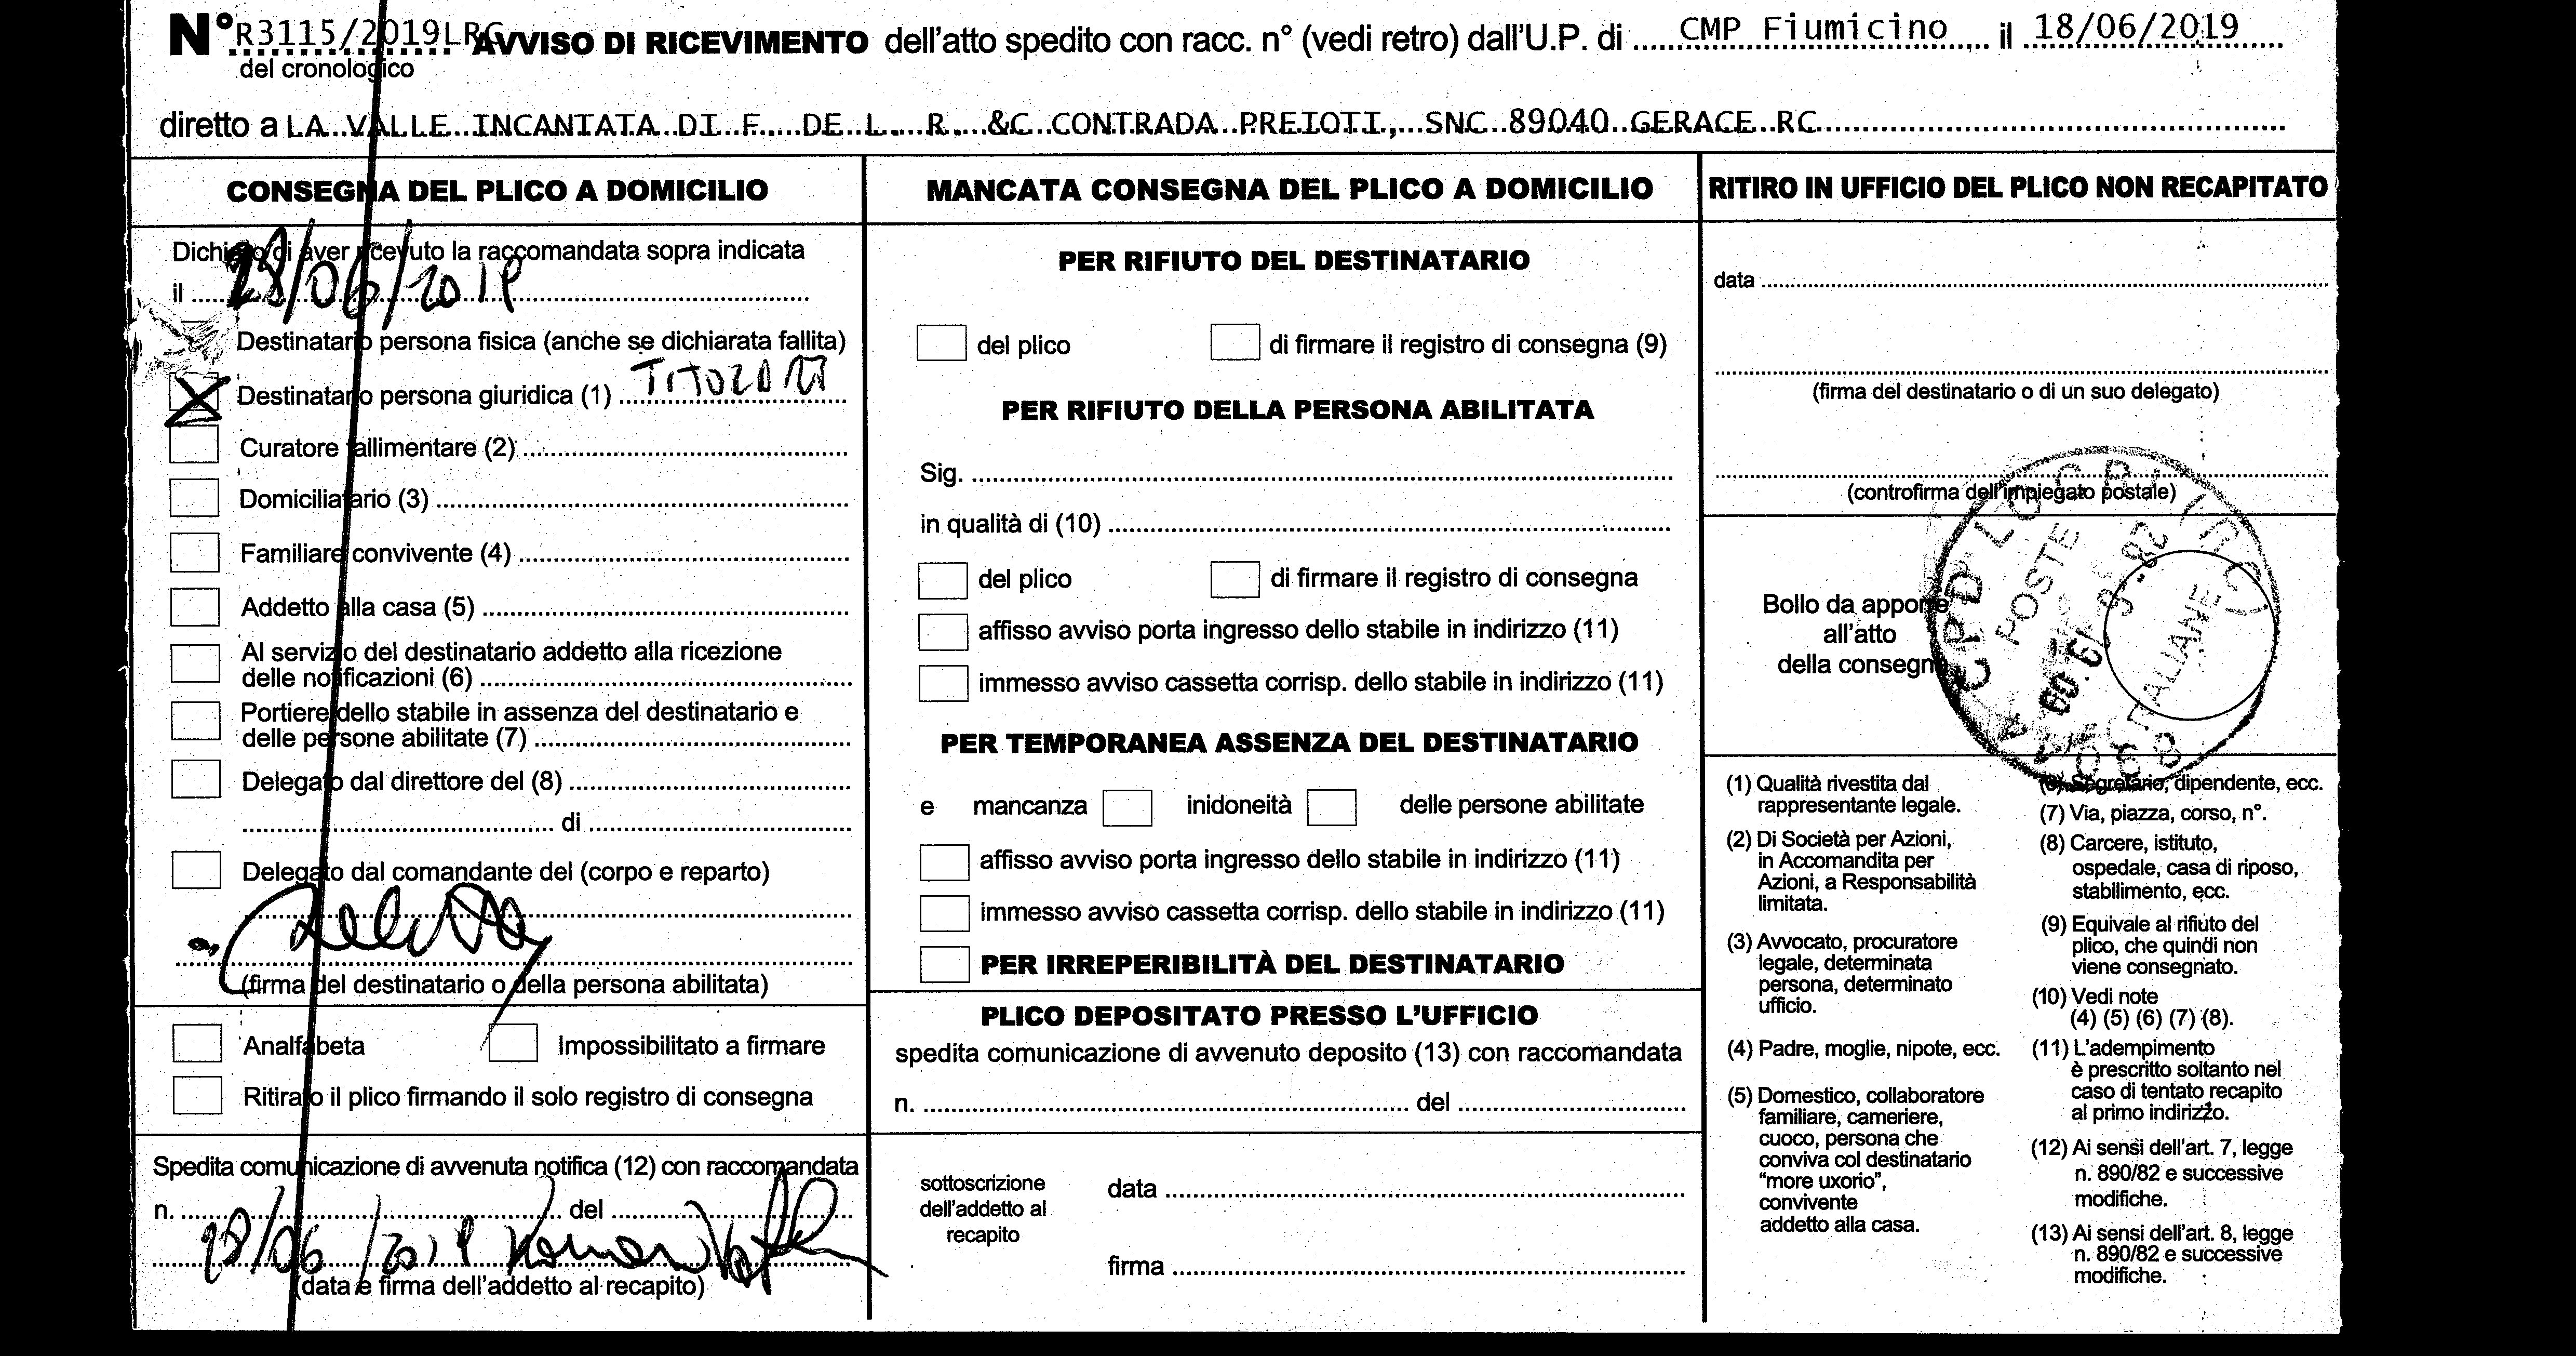 N° R3115/2019LRG AVVISO DI RICEVIMENTO dell'atto spedito con racc. n° (vedi retro) dall'U.P. di CMP Fiumicino il 18/06/2019
del cronologico
diretto a LA VALLE INCANTATA DI F. DE L. R. &C CONTRADA PREIOTI, SNC 89040 GERACE RC
CONSEGNA DEL PLICO A DOMICILIO
Dichiaro di aver ricevuto la raccomandata sopra indicata
il 28/06/2019
Destinatario persona fisica (anche se dichiarata fallita)
Destinatario persona giuridica (1)
Curatore fallimentare (2)
Domiciliatario (3)
Familiare convivente (4)
Addetto alla casa (5)
Al servizio del destinatario addetto alla ricezione
delle notificazioni (6)
Portiere dello stabile in assenza del destinatario e
delle persone abilitate (7)
Delegato dal direttore del (8)
di
Delegato dal comandante del (corpo e reparto)
(firma del destinatario o della persona abilitata)
Analfabeta Impossibilitato a firmare
Ritirato il plico firmando il solo registro di consegna
Spedita comunicazione di avvenuta notifica (12) con raccomandata
n. del
28/06/2019
(data e firma dell'addetto al recapito)
MANCATA CONSEGNA DEL PLICO A DOMICILIO
PER RIFIUTO DEL DESTINATARIO
del plico di firmare il registro di consegna (9)
PER RIFIUTO DELLA PERSONA ABILITATA
Sig.
in qualità di (10)
del plico di firmare il registro di consegna
affisso avviso porta ingresso dello stabile in indirizzo (11)
immesso avviso cassetta corrisp. dello stabile in indirizzo (11)
PER TEMPORANEA ASSENZA DEL DESTINATARIO
e mancanza inidoneità delle persone abilitate
affisso avviso porta ingresso dello stabile in indirizzo (11)
immesso avviso cassetta corrisp. dello stabile in indirizzo (11)
PER IRREPERIBILITÀ DEL DESTINATARIO
PLICO DEPOSITATO PRESSO L'UFFICIO
spedita comunicazione di avvenuto deposito (13) con raccomandata
n. del
sottoscrizione
dell'addetto al
recapito
data
firma
RITIRO IN UFFICIO DEL PLICO NON RECAPITATO
data
(firma del destinatario o di un suo delegato)
(controfirma dell'impiegato postale)
Bollo da apporre
all'atto
della consegna
CPD LOCRI (RC)
POSTE
ITALIANE
28.6.19
(1) Qualità rivestita dal
rappresentante legale.
(2) Di Società per Azioni,
in Accomandita per
Azioni, a Responsabilità
limitata.
(3) Avvocato, procuratore
legale, determinata
persona, determinato
ufficio.
(4) Padre, moglie, nipote, ecc.
(5) Domestico, collaboratore
familiare, cameriere,
cuoco, persona che
conviva col destinatario
"more uxorio",
convivente
addetto alla casa.
(6) Segretario, dipendente, ecc.
(7) Via, piazza, corso, n°.
(8) Carcere, istituto,
ospedale, casa di riposo,
stabilimento, ecc.
(9) Equivale al rifiuto del
plico, che quindi non
viene consegnato.
(10) Vedi note
(4) (5) (6) (7) (8).
(11) L'adempimento
è prescritto soltanto nel
caso di tentato recapito
al primo indirizzo.
(12) Ai sensi dell'art. 7, legge
n. 890/82 e successive
modifiche.
(13) Ai sensi dell'art. 8, legge
n. 890/82 e successive
modifiche.